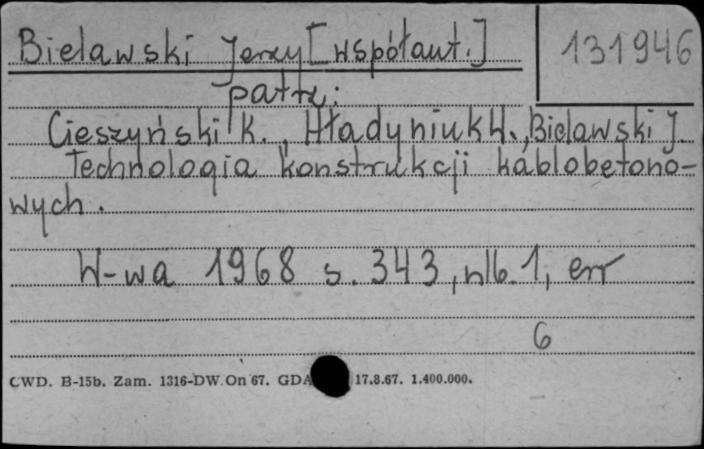 Bielawski Jerzy [współaut.]
131946
patrz:
Cieszyński K., Hładyniuk W., Bielawski J.
Technologia konstrukcji kablobetono-
wych.
W-wa 1968 s. 343, nlb. 1, err
6
CWD. B-15b. Zam. 1316-DW.On 67. GDA 17.8.67. 1.400.000.